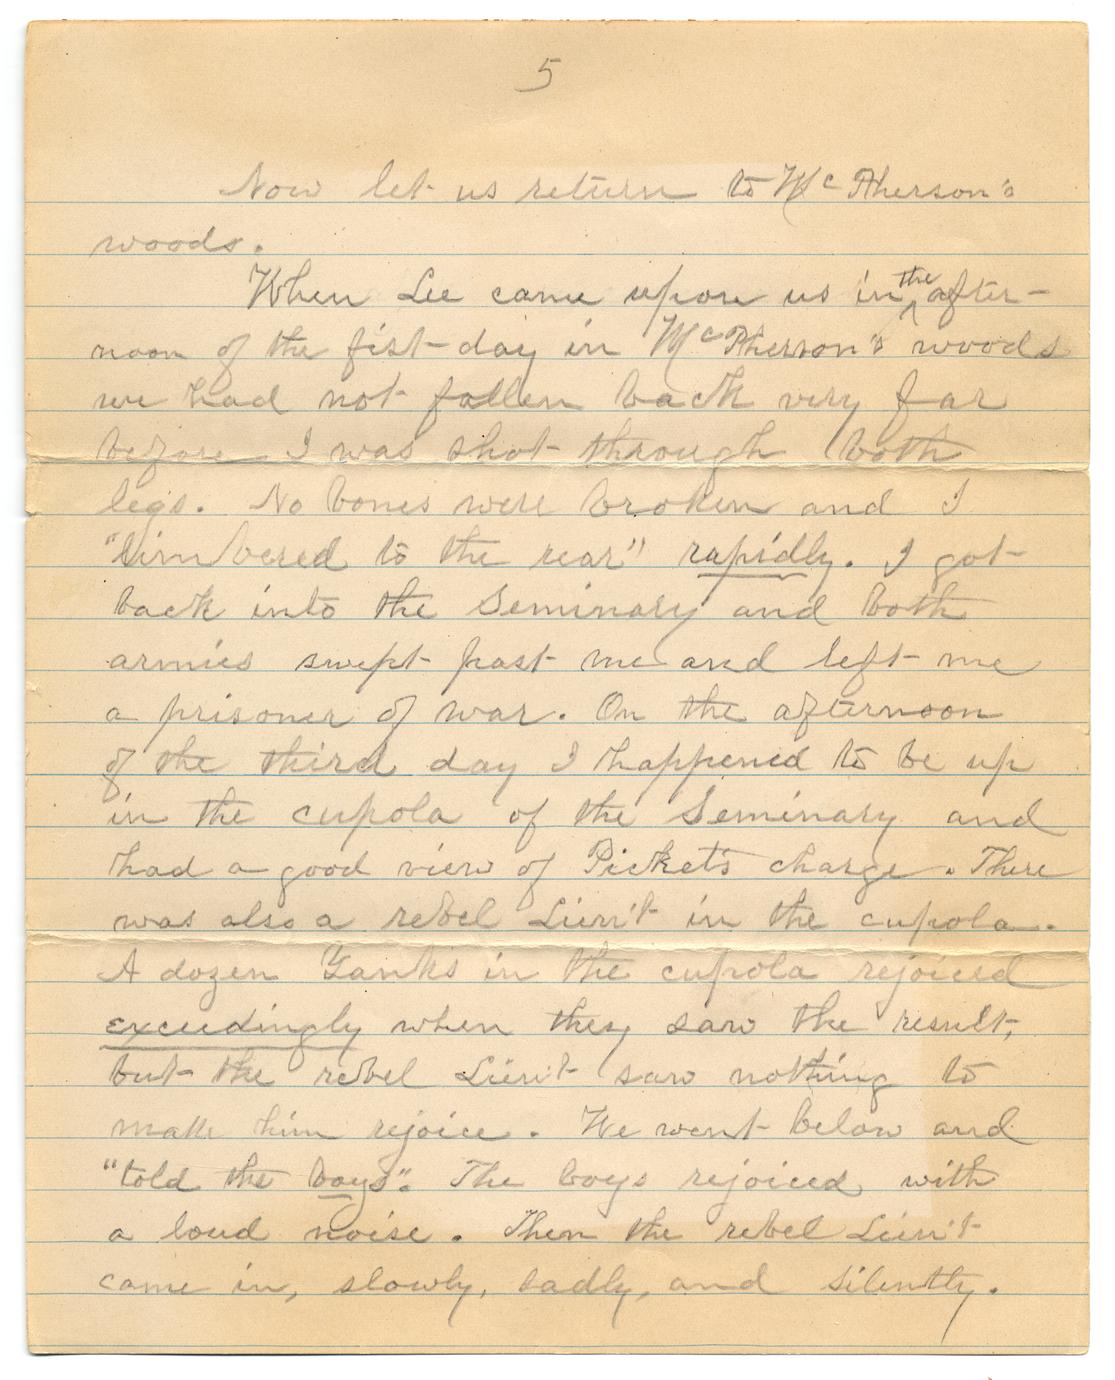 5
Now let us return to McPherson's
woods.
When Lee came upon us in the after-
noon of the fist day in McPherson's woods
we had not fallen back very far
before I was shot through both
legs. No bones were broken and I
"limbered to the rear" rapidly. I got
back into the Seminary and both
armies swept past me and left me
a prisoner of war. On the afternoon
of the third day I happened to be up
in the cupola of the Seminary and
had a good view of Picket's charge. There
was also a rebel Lieu't in the cupola.
A dozen Yanks in the cupola rejoiced
exceedingly when they saw the result,
but the rebel Lieu't saw nothing to
make him rejoice. We went below and
"told the boys". The boys rejoiced with
a loud noise. Then the rebel Lieu't
came in, slowly, sadly, and silently.